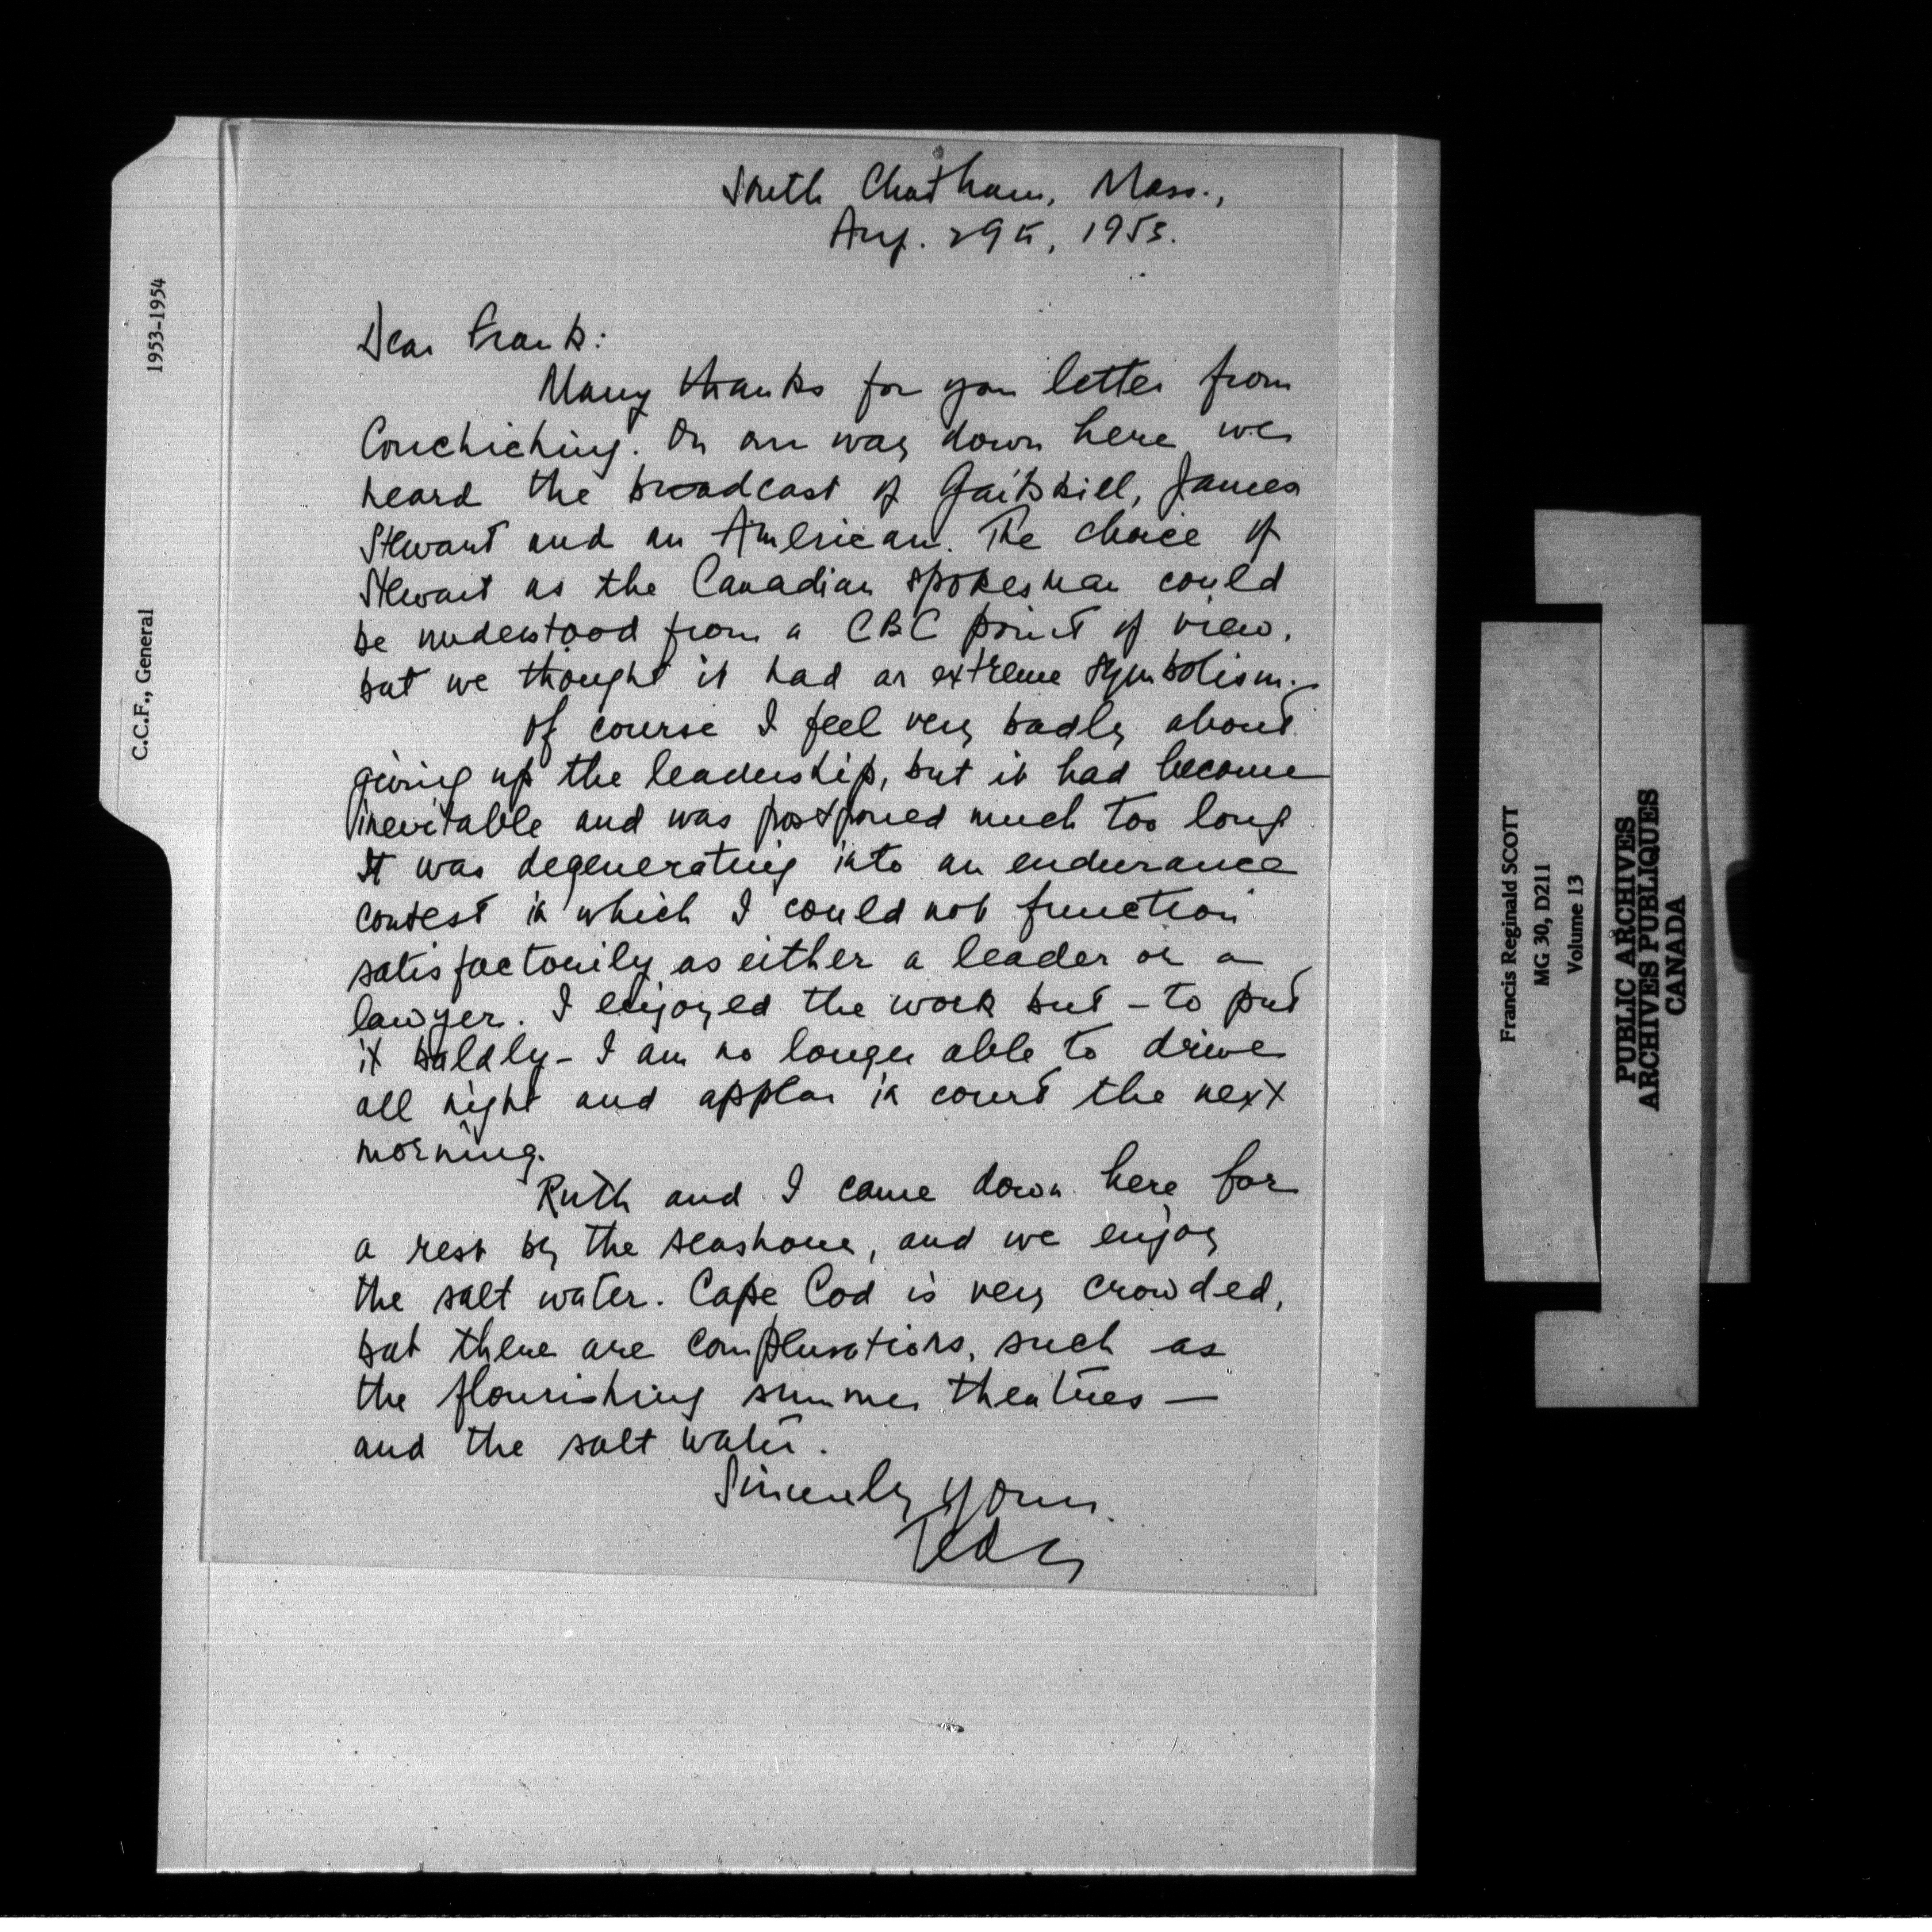 South Chatham, Mass.,
Aug. 29th, 1953.
Dear Frank:
Many thanks for your letter from
Couchiching. On our way down here we
heard the broadcast of Gaitskill, James
Stewart and an American. The choice of
Stewart as the Canadian spokesman could
be understood from a CBC point of view,
but we thought it had an extreme symbolism.
Of course I feel very badly about
giving up the leadership, but it had become
inevitable and was postponed much too long
It was degenerating into an endurance
contest in which I could not function
satisfactorily as either a leader or a
lawyer. I enjoyed the work but – to put
it baldly – I am no longer able to drive
all night and appear in court the next
morning.
Ruth and I came down here for
a rest by the seashore, and we enjoy
the salt water. Cape Cod is very crowded,
but there are compensations, such as
the flourishing summer theatres –
and the salt water.
Sincerely yours.
Teddy
1953-1954
C.C.F., General
Francis Reginald SCOTT
MG 30, D211
Volume 13
PUBLIC ARCHIVES
ARCHIVES PUBLIQUES
CANADA